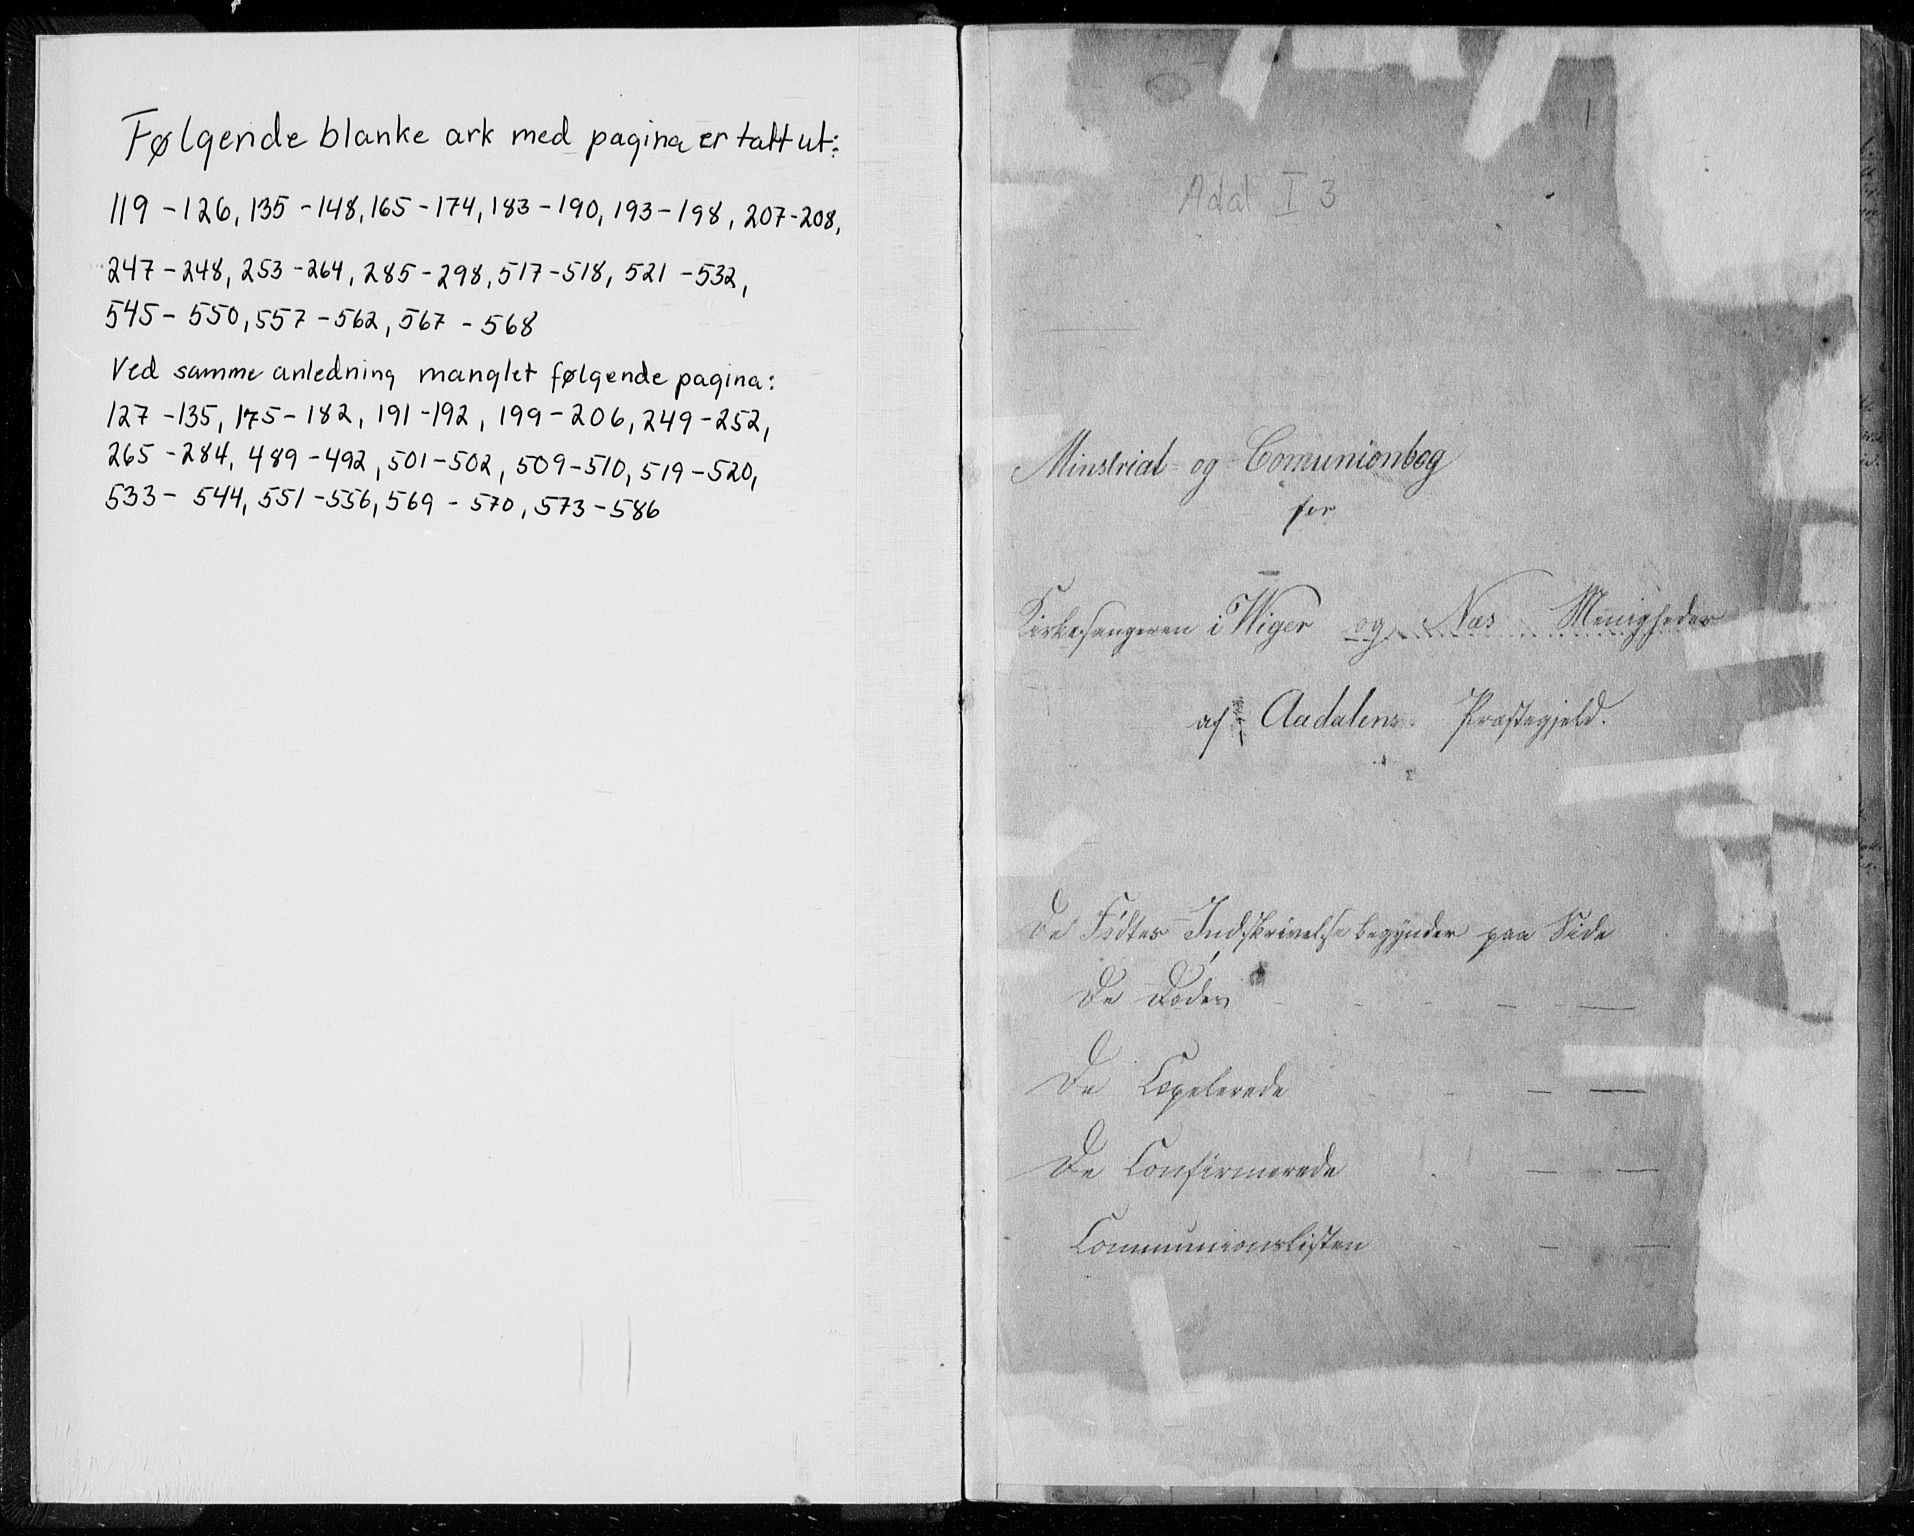 Følgende blanke ark med pagina er tatt ut:
119 - 126, 135 - 148, 165 - 174, 183 - 190, 193 - 198, 207 - 208,
247 - 248, 253 - 264, 285 - 298, 517 - 518, 521 - 532,
545 - 550, 557 - 562, 567 - 568
Ved samme anledning manglet følgende pagina:
127 - 135, 175 - 182, 191 - 192, 199 - 206, 249 - 252,
265 - 284, 489 - 492, 501 - 502, 509 - 510, 519 - 520,
533 - 544, 551 - 556, 569 - 570, 573 - 586
1
Ådal I 3
Minstrial- og Comunionbog
for
Kirkesangeren i Wiger og Næs Menigheder
af Aadalens Præstegjeld.
De Fødtes Indskrivelse begynder paa Side
De Døde
De Copelerede
De Confirmerede
Communionslisten